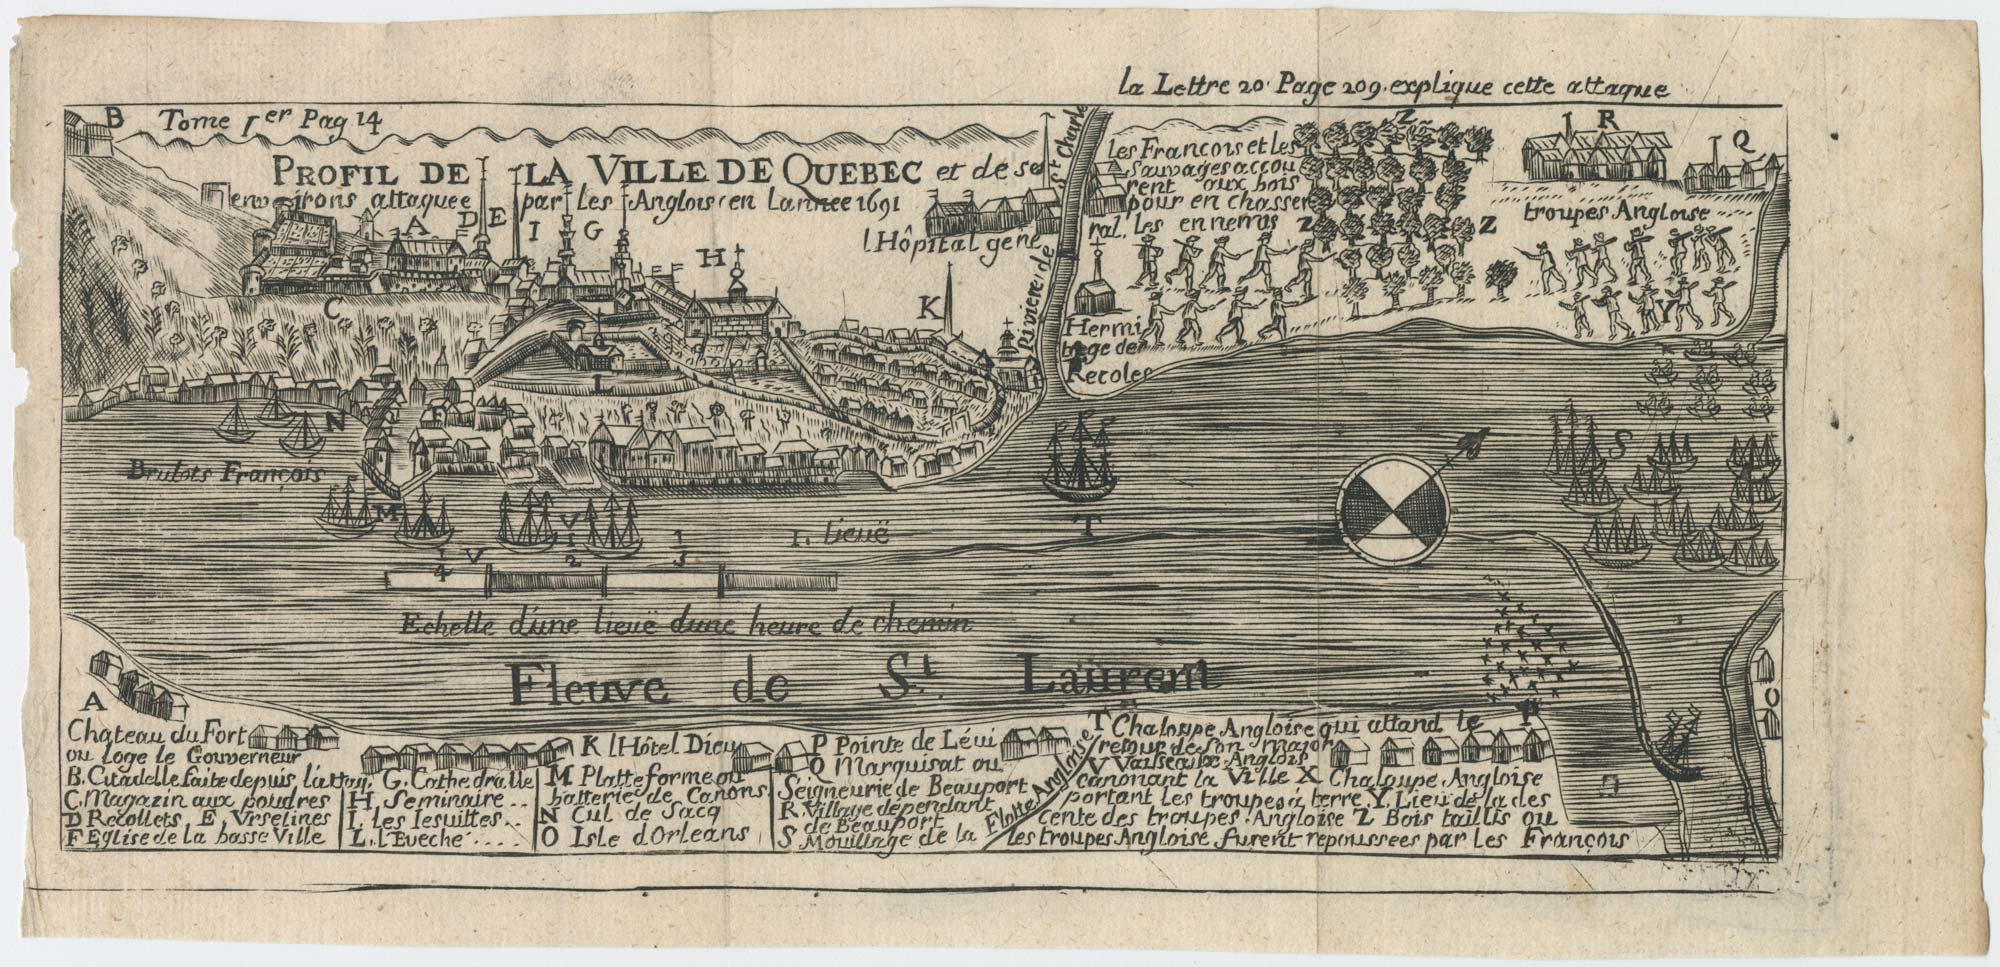 la Lettre 20. Page 209. explique cette attaque
B
Tome I.er Pag 14
PROFIL DE LA VILLE DE QUEBEC et de ses
environs attaquee par les Anglois en Lannee 1691
A
D
E
I
G
H
C
K
L
F
N
M
l'Hôpital gene
ral.
Riviere de St Charle
les Francois et les
Sauvages accou
rent aux bois
pour en chasser
les ennemis
Hermi
tage des
Recoles
Z
Z
Z
R
Q
troupes Angloise
Y
S
T
Brulots François
V
V
1/4
1/2
1/3
1. lieuë
Echelle d'une lieuë d'une heure de chemin
Fleuve de St. Laurent
P
O
A
Chateau du Fort
ou loge le Gouverneur
B. Citadelle faite depuis
C. Magazin aux poudres
D Recollets E, Vrselines
F Eglise de la basse Ville
G. Cathedralle
H, Seminaire ..
I. les Iesuittes..
L. l'Eveché ....
K l'Hôtel Dieu
M Platte forme ou
batterie de Canons
N Cul de Sacq
O Isle d'Orleans
P Pointe de Lévi
Q Marquisat ou
Seigneurie de Beauport
R. Village dépendant
de Beauport
S Mouillage de la Flotte Angloise
T Chaloupe Angloise qui attand le
retour de son major
V Vaisseaux Anglois
canonant la Ville X Chaloupe Angloise
portant les troupes à terre, Y. Lieu de la des
cente des troupes Angloise Z Bois taillis ou
les troupes Angloise furent repoussées par les François